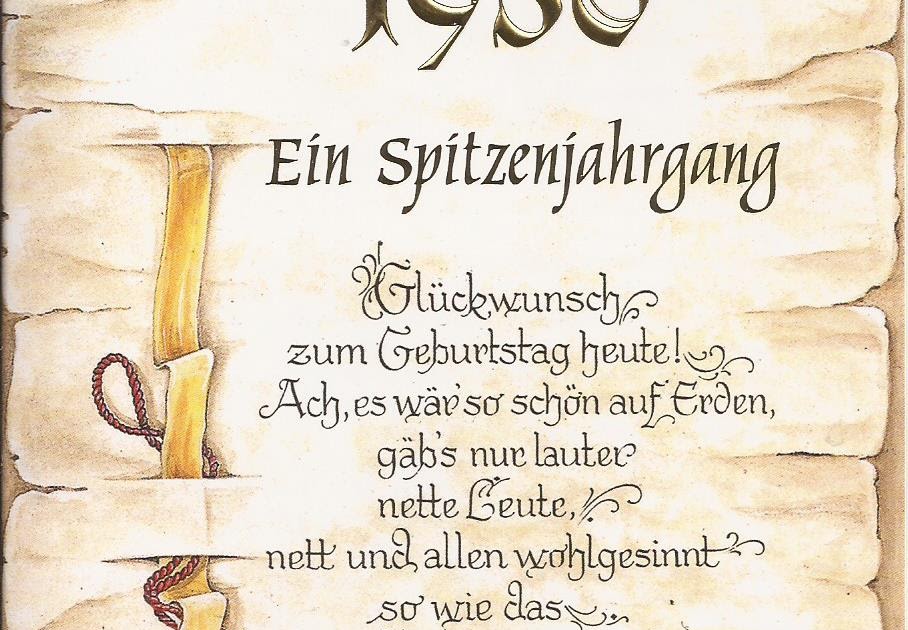 Ein Spitzenjahrgang
Glückwunsch
zum Geburtstag heute!
Ach, es wär so schön auf Erden,
gäb's nur lauter
nette Leute,
nett und allen wohlgesinnt
so wie das